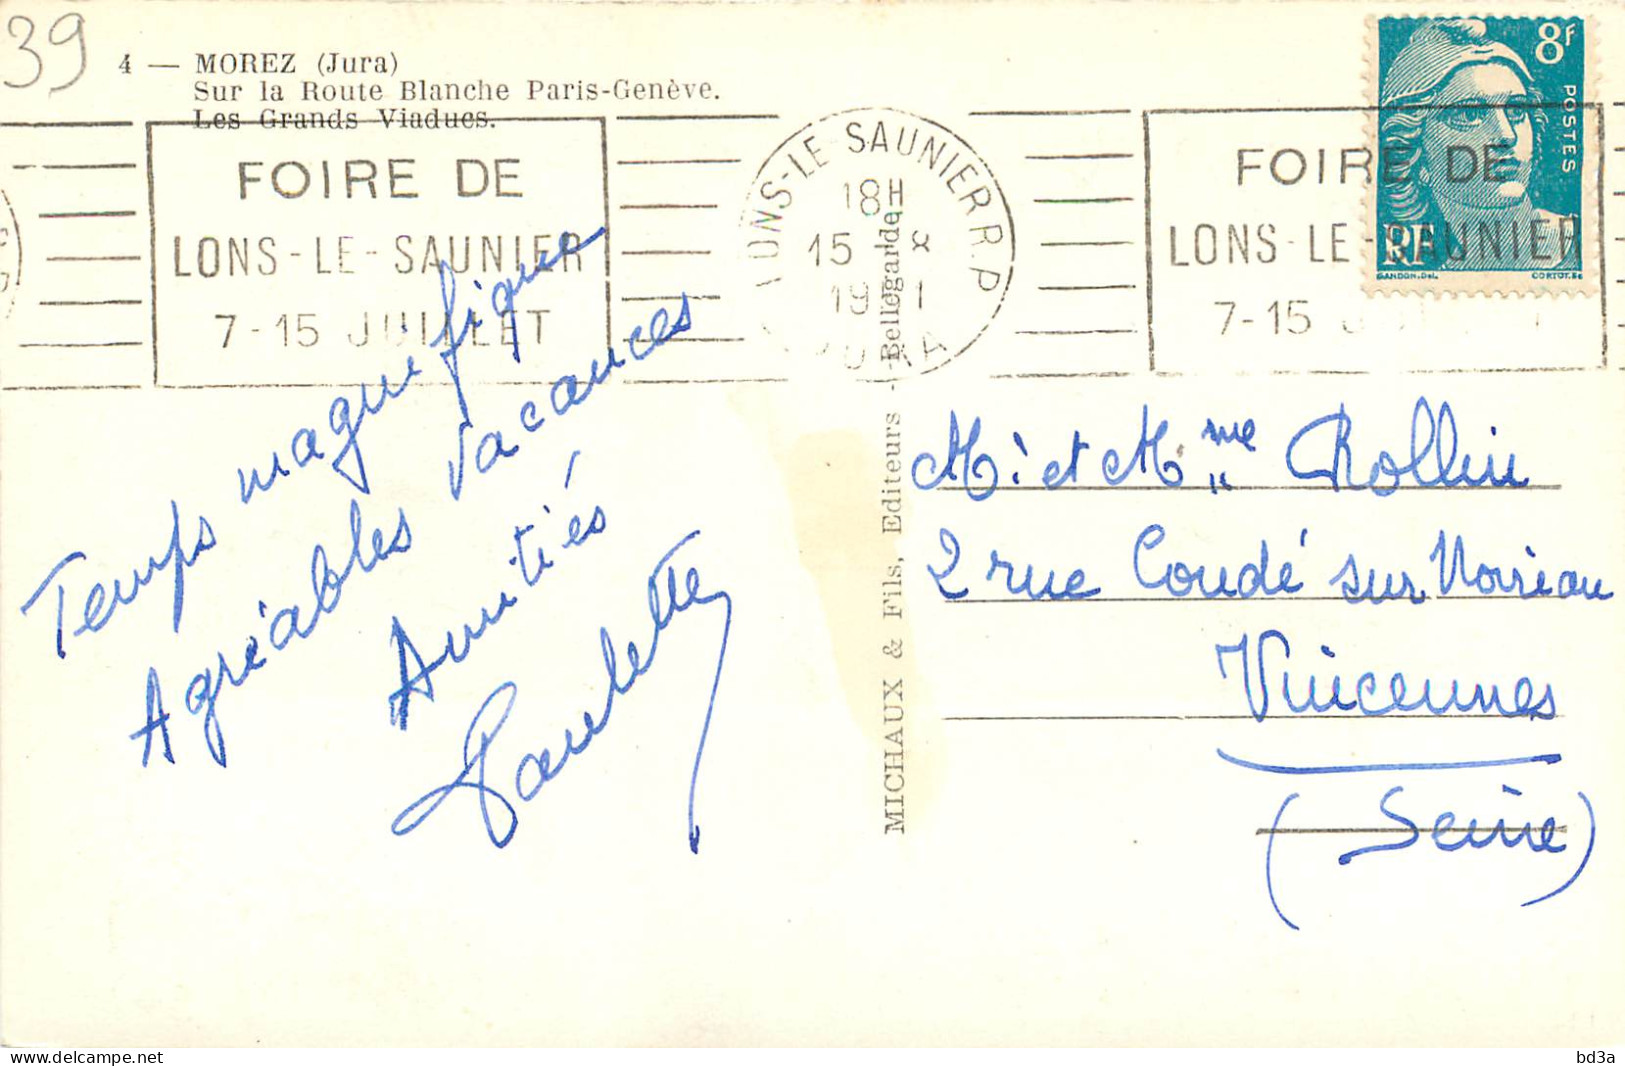 39
4 — MOREZ (Jura)
Sur la Route Blanche Paris-Genève.
Les Grands Viaducs.
FOIRE DE
LONS-LE-SAUNIER
7-15 JUILLET
LONS-LE-SAUNIER R.P
18H
15
19 1
JURA
8F
POSTES
RF
GANDON.Del.
CORTOT.Sc
FOIRE DE
LONS-LE-SAUNIER
7-15 J
Temps magnifique
Agréables vacances
Amitiés
Paulette
MICHAUX & Fils, Editeurs - Bellegarde
Mr et Mme Rollin
2 rue Condé sur Noireau
Vincennes
(Seine)
delcampe.net
bd3a